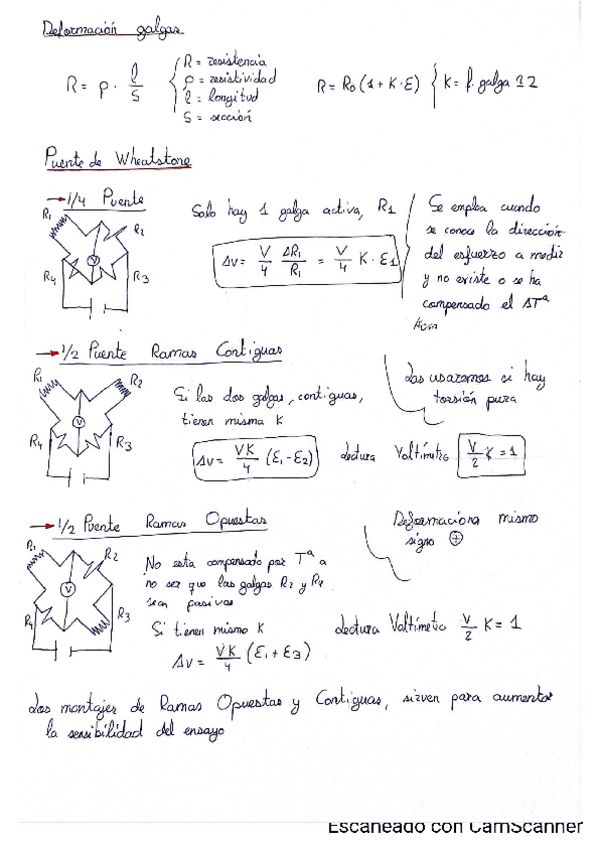 Deformación galgas
R = ρ · l/S
R = resistencia
ρ = resistividad
l = longitud
S = sección
R = R0 (1 + K · ε) { K = f. galga
Puente de Wheatstone
→ 1/4 Puente
Solo hay 1 galga activa, R1
ΔV = V/4 ΔR1/R1 = V/4 K · ε1
Se emplea cuando
se conoce la dirección
del esfuerzo a medir
y no existe o se ha
compensado el ΔTª
R1
R2
R4
V
R3
→ 1/2 Puente Ramas Contiguas
Si las dos galgas, contiguas,
tienen misma K
ΔV = VK/4 (ε1 - ε2)
Lectura Voltímetro V/2 K = 1
Las usaremos si hay
torsión pura
R1
R2
R4
V
R3
→ 1/2 Puente Ramas Opuestas
Deformaciona mismo
signo ⊕
No esta compensado por Tª a
no ser que las galgas R2 y R4
sean pasivas
Si tienen mismo K
ΔV = VK/4 (ε1 + ε3)
Lectura Voltímetro V/2 K = 1
R1
R2
V
R4
R3
Los montajes de Ramas Opuestas y Contiguas, sirven para aumentar
la sensibilidad del ensayo
Escaneado con CamScanner